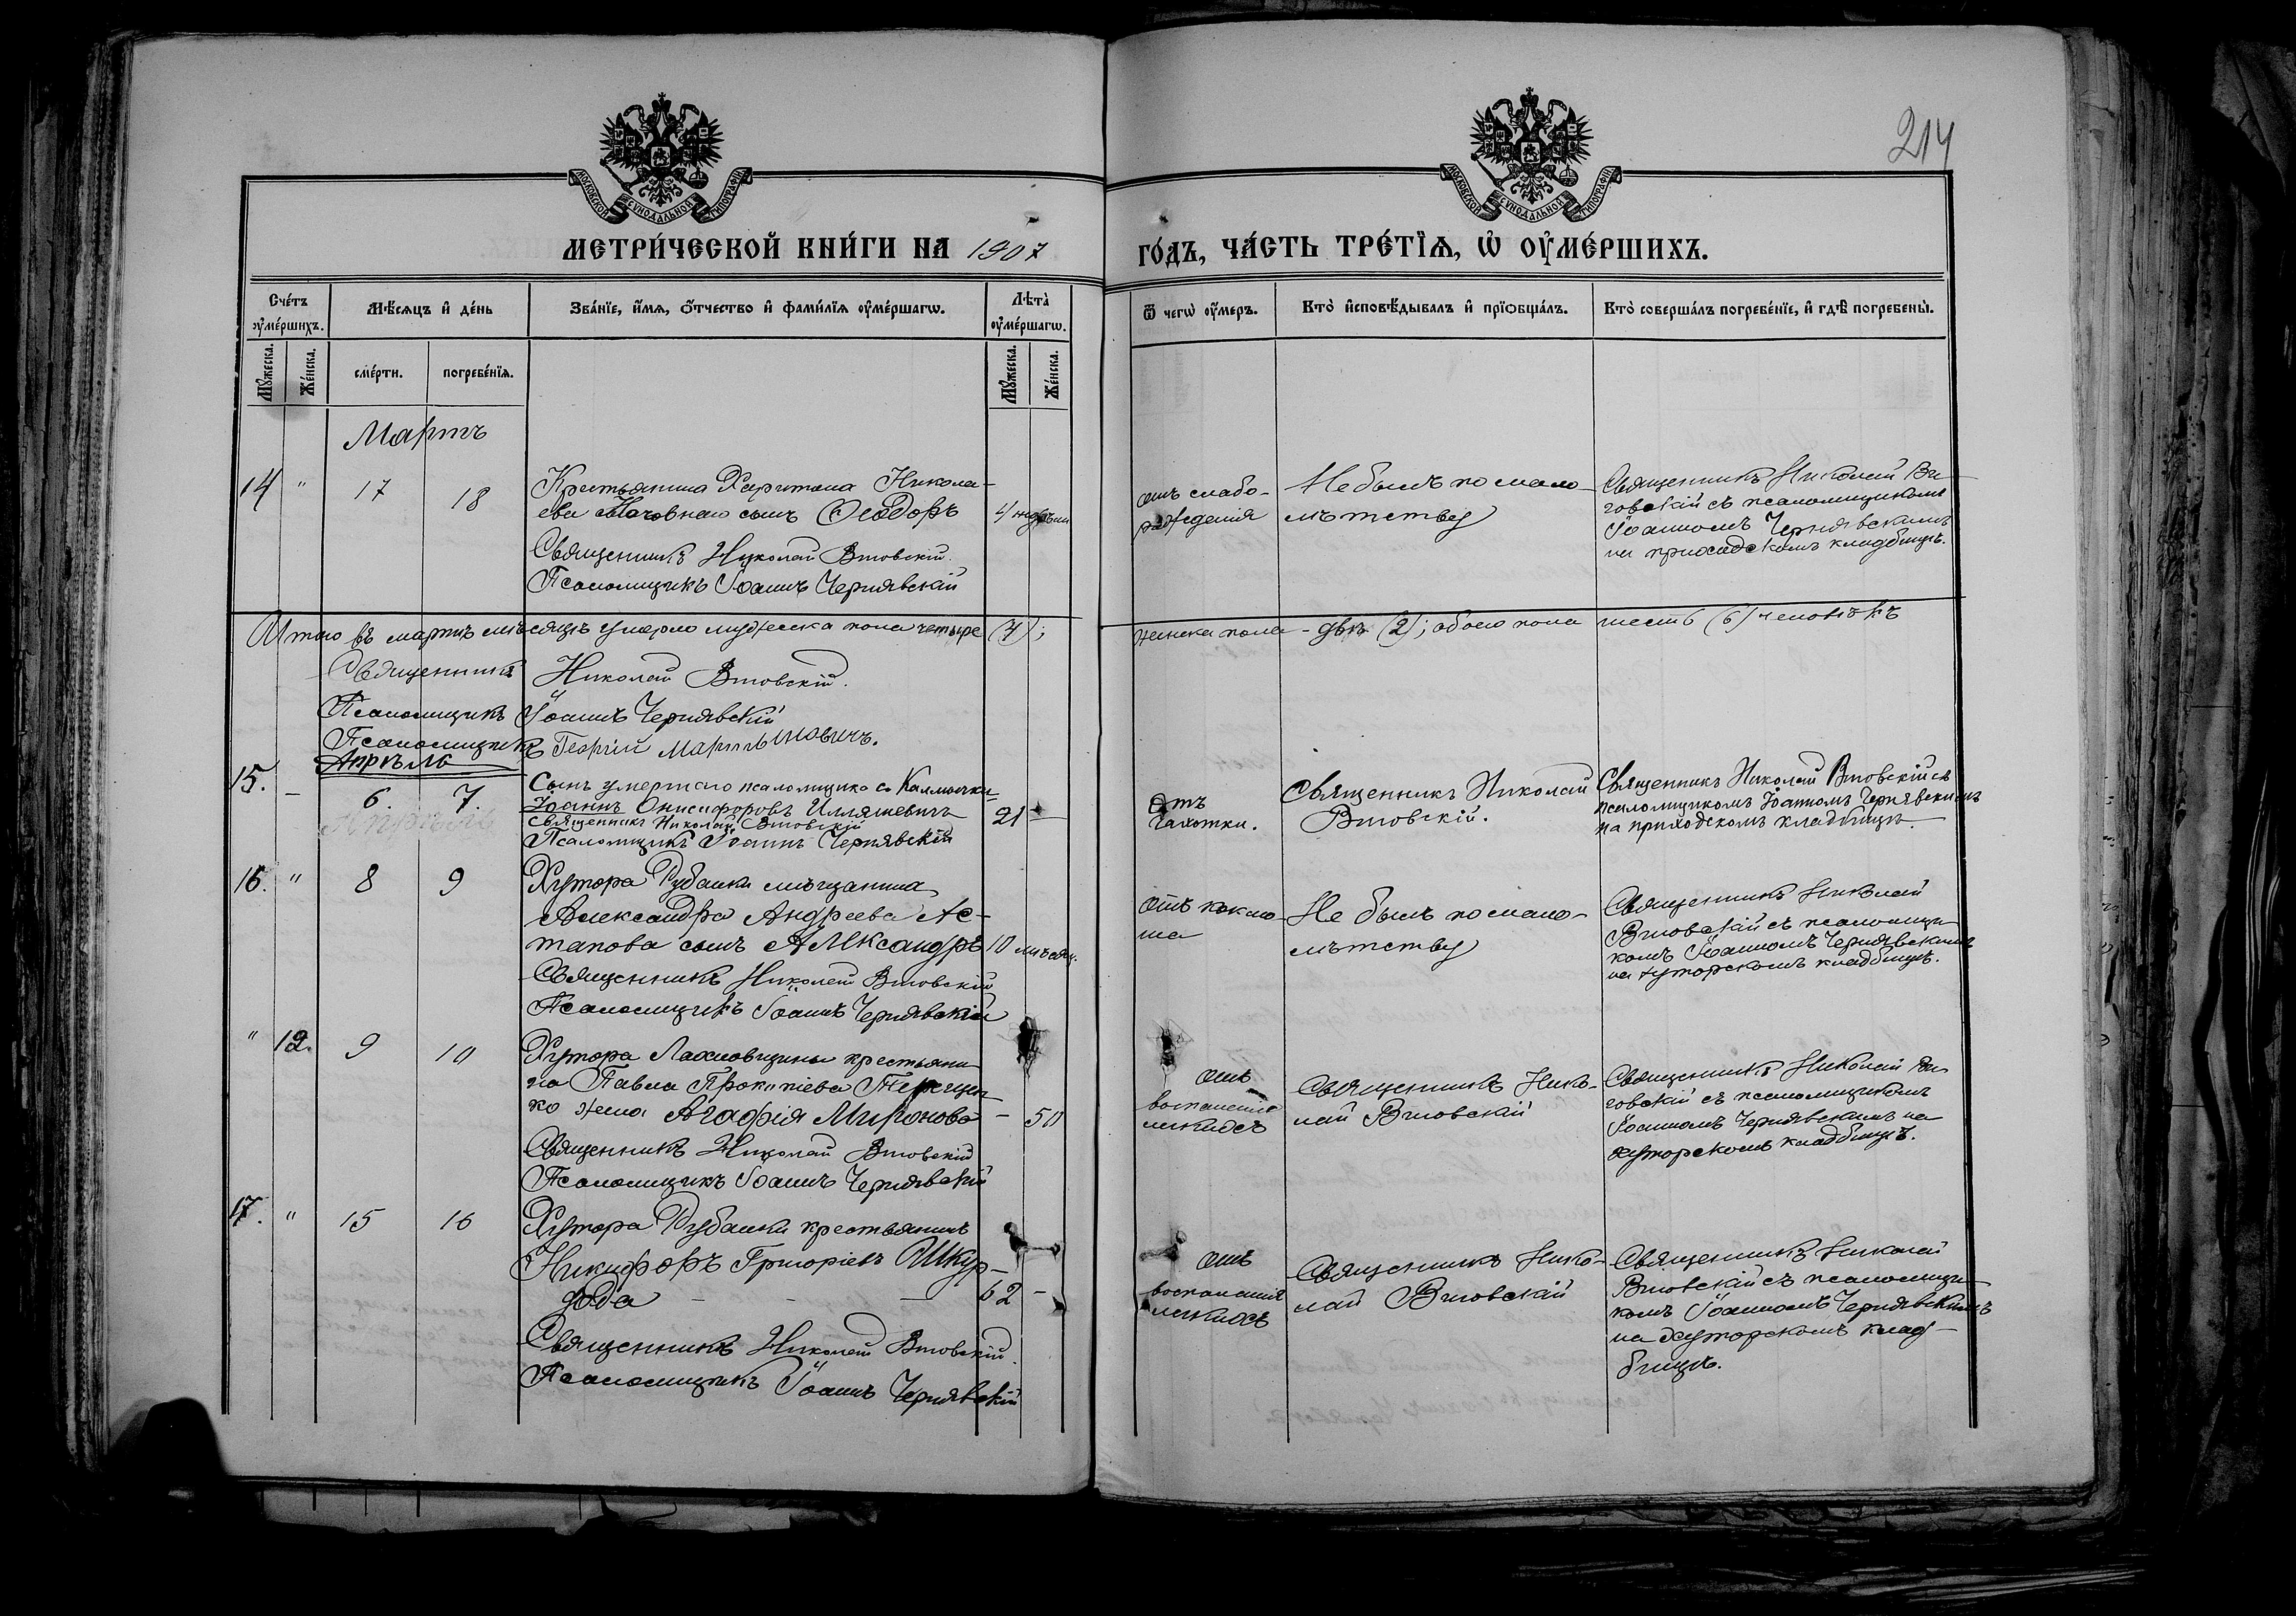 214
МОСКОВСКОЙ СѴНОДАЛЬНОЙ ТИПОГРАФІИ
МОСКОВСКОЙ СѴНОДАЛЬНОЙ ТИПОГРАФІИ
МЕТРИЧЕСКОЙ КНИГИ НА 1907
ГОДЪ, ЧАСТЬ ТРЕТІѦ, Ѡ ОУМЕРШИХЪ.
Счетъ оумершихъ.
Мѣсяцъ и день
Званіе, имя, отчество и фамилія оумершагѡ.
Лѣта оумершагѡ.
Ѿ чегѡ оумеръ.
Кто исповѣдывалъ и пріобщалъ.
Кто совершалъ погребеніе, и гдѣ погребены.
Мужеска.
Женска.
смерти.
погребенія.
Мужеска.
Женска.
Мартъ
14 " 17 18
Крестьянина Харитона Никола-
ева сынъ Ѳеодоръ
4 недѣли
Священникъ Николай Виговскій
Псаломщикъ Іоаннъ Чернявскій
отъ слабо-
рожденія
Не былъ по мало-
лѣтству
Священникъ Николай Ви-
говскій съ псаломщикомъ
Іоанномъ Чернявскимъ
на приходскомъ кладбищѣ.
Итого въ мартѣ мѣсяцѣ умерло мужеска пола четыре (4);
женска пола - двѣ (2); обоего пола шесть (6) человѣкъ
Священникъ Николай Виговскій.
Псаломщикъ Іоаннъ Чернявскій
Псаломщикъ Георгій Мартыновичъ.
Апрѣль
15. - 6. 7.
Сынъ умершаго псаломщика с. Калмычки
Іоаннъ Онисифоровъ Илляшевичъ
21 -
Священникъ Николай Виговскій
Псаломщикъ Іоаннъ Чернявскій
Отъ
чахотки.
Священникъ Николай
Виговскій.
Священникъ Николай Виговскій съ
псаломщикомъ Іоанномъ Чернявскимъ
на приходскомъ кладбищѣ.
16. " 8 9
Хутора Рубашки мѣщанина
Александра Андреева Ас-
тапова сынъ Александръ
10 мѣсяц.
Священникъ Николай Виговскій
Псаломщикъ Іоаннъ Чернявскій
отъ коклю-
ша
Не былъ по мало-
лѣтству
Священникъ Николай
Виговскій съ псаломщи-
комъ Іоанномъ Чернявскимъ
на хуторскомъ кладбищѣ.
" 12. 9 10
Хутора крестьяни-
на Павла Прокопіева Терещен-
ко жена Агафія Миронова
- 50
Священникъ Николай Виговскій
Псаломщикъ Іоаннъ Чернявскій
отъ
воспаленія
легкихъ
Священникъ Нико-
лай Виговскій
Священникъ Николай Ви-
говскій съ псаломщикомъ
Іоанномъ Чернявскимъ на
хуторскомъ кладбищѣ.
17. " 15 16
Хутора Рубашки крестьянинъ
Никифоръ Григоріевъ Шкур-
пода
62 -
Священникъ Николай Виговскій
Псаломщикъ Іоаннъ Чернявскій
отъ
воспаленія
легкихъ
Священникъ Нико-
лай Виговскій
Священникъ Николай
Виговскій съ псаломщи-
комъ Іоанномъ Чернявскимъ
на хуторскомъ клад-
бищѣ.